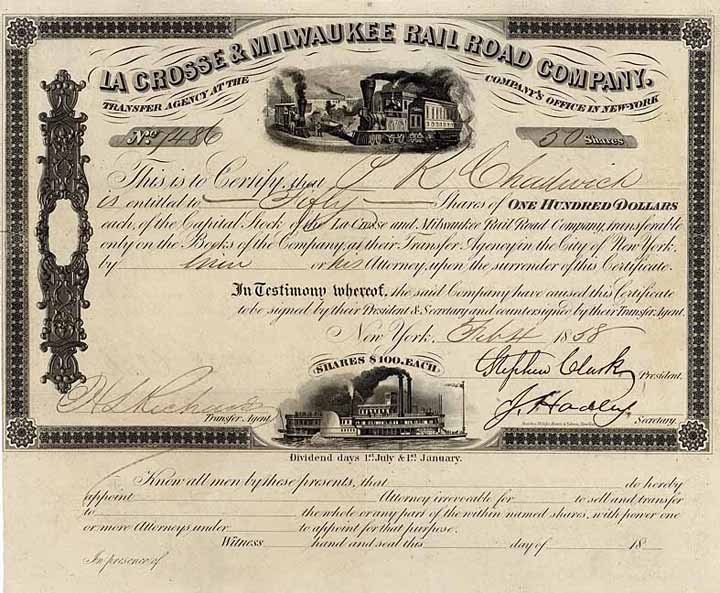 LA CROSSE & MILWAUKEE RAIL ROAD COMPANY.
TRANSFER AGENCY AT THE COMPANY'S OFFICE IN NEW-YORK
No. 1486 50 Shares
This is to Certify, that R Chadwick
is entitled to Fifty Shares of ONE HUNDRED DOLLARS
each, of the Capital Stock of the La Crosse and Milwaukee Rail Road Company, transferable
only on the Books of the Company, at their Transfer Agency in the City of New York.
by him or his Attorney, upon the surrender of this Certificate.
In Testimony whereof, the said Company have caused this Certificate
to be signed by their President & Secretary and countersigned by their Transfer Agent.
New York. Feb 4 1858
SHARES $100. EACH
Stephen Clark President.
Transfer Agent
J. Hadley Secretary.
Dividend days 1st July & 1st January.
Know all men by these presents, that do hereby
appoint Attorney irrevocable for to sell and transfer
to the whole or any part of the within named shares, with power one
or more Attorneys under to appoint for that purpose.
Witness hand and seal this day of 18
In presence of